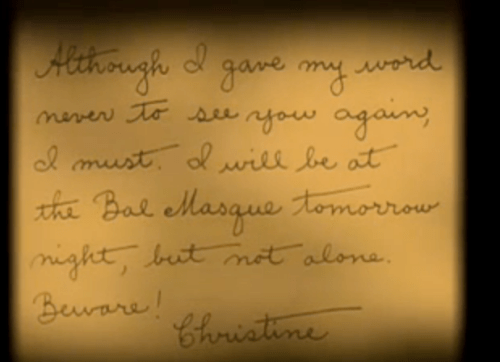 Although I gave my word
never to see you again,
I must. I will be at
the Bal Masque tomorrow
night, but not alone.
Beware!
Christine